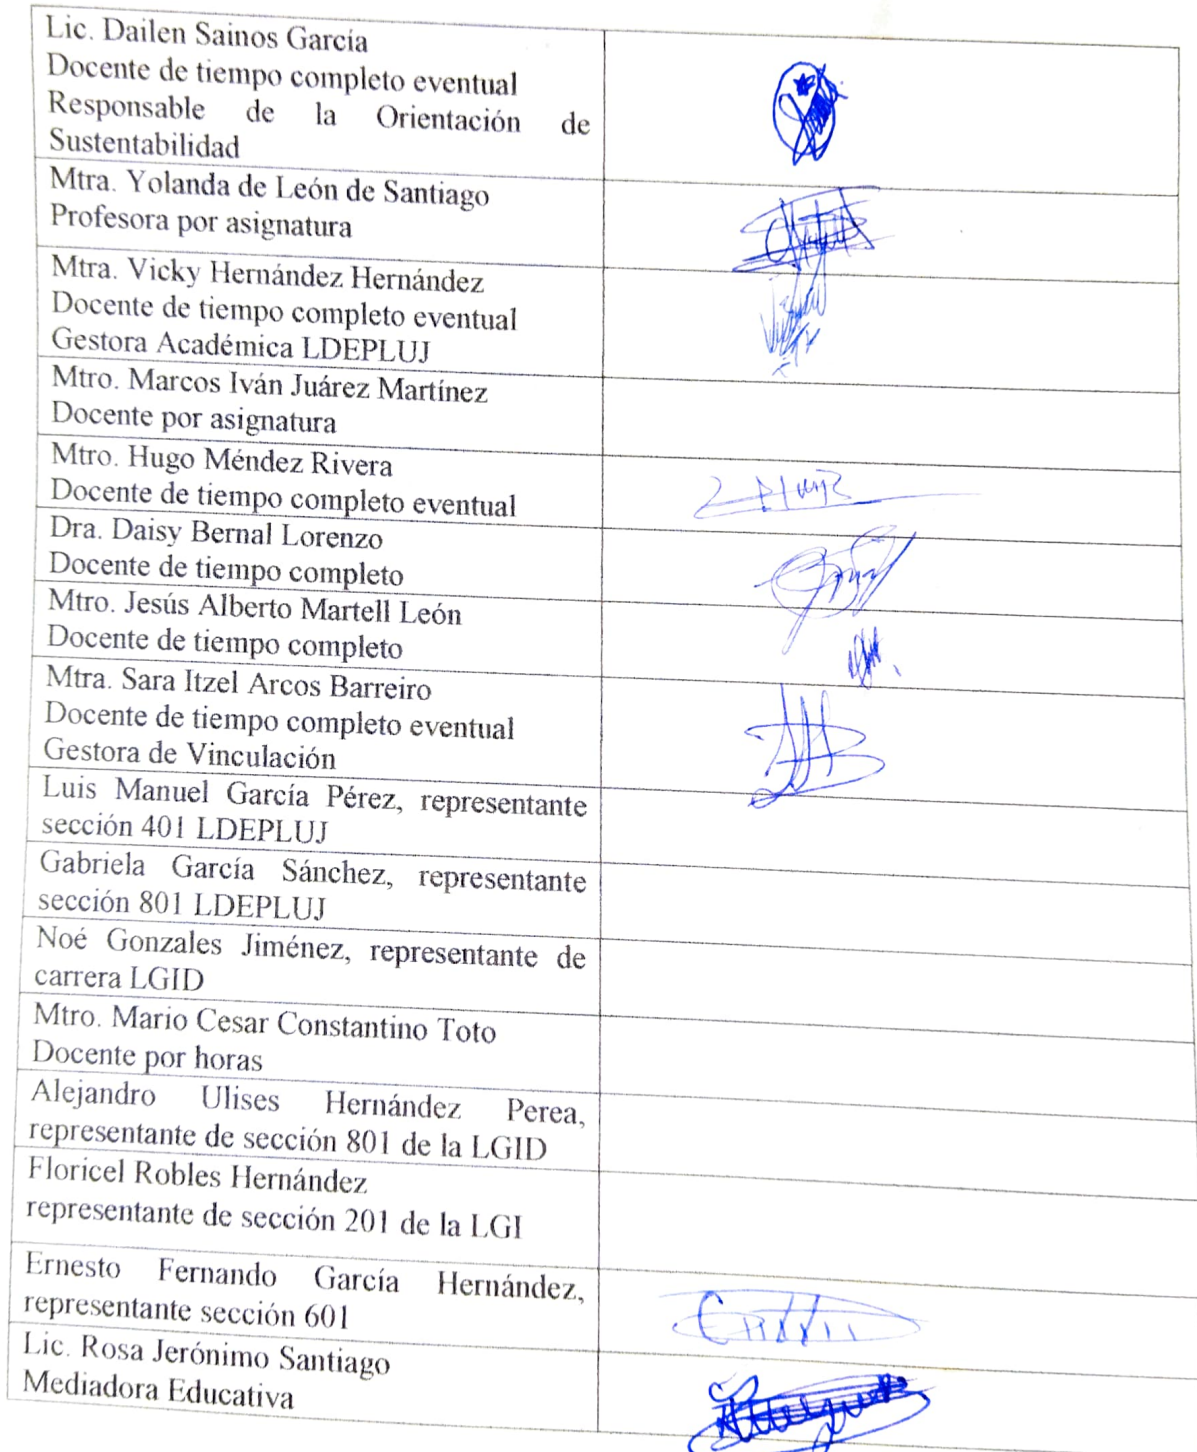 Lic. Dailen Sainos García
Docente de tiempo completo eventual
Responsable de la Orientación de
Sustentabilidad
Mtra. Yolanda de León de Santiago
Profesora por asignatura
Mtra. Vicky Hernández Hernández
Docente de tiempo completo eventual
Gestora Académica LDEPLUJ
Mtro. Marcos Iván Juárez Martínez
Docente por asignatura
Mtro. Hugo Méndez Rivera
Docente de tiempo completo eventual
Dra. Daisy Bernal Lorenzo
Docente de tiempo completo
Mtro. Jesús Alberto Martell León
Docente de tiempo completo
Mtra. Sara Itzel Arcos Barreiro
Docente de tiempo completo eventual
Gestora de Vinculación
Luis Manuel García Pérez, representante
sección 401 LDEPLUJ
Gabriela García Sánchez, representante
sección 801 LDEPLUJ
Noé Gonzales Jiménez, representante de
carrera LGID
Mtro. Mario Cesar Constantino Toto
Docente por horas
Alejandro Ulises Hernández Perea,
representante de sección 801 de la LGID
Floricel Robles Hernández
representante de sección 201 de la LGI
Ernesto Fernando García Hernández,
representante sección 601
Lic. Rosa Jerónimo Santiago
Mediadora Educativa